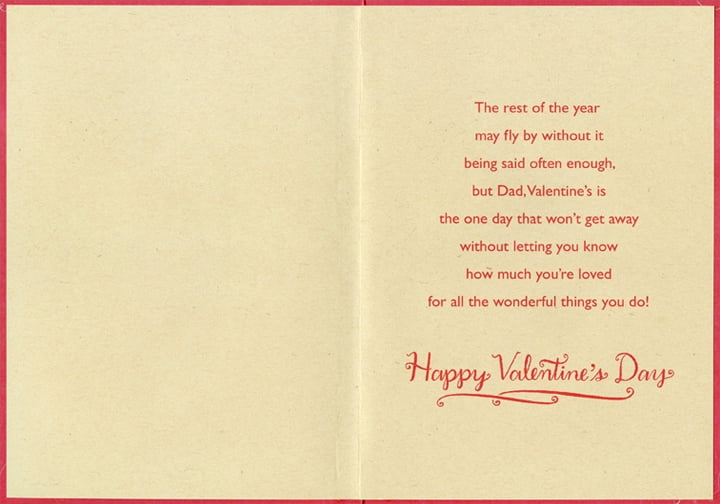 The rest of the year
may fly by without it
being said often enough,
but Dad, Valentine's is
the one day that won't get away
without letting you know
how much you're loved
for all the wonderful things you do!
Happy Valentine's Day